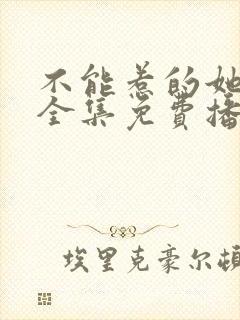 不能惹的她
全集免費播
埃里克豪尔頓